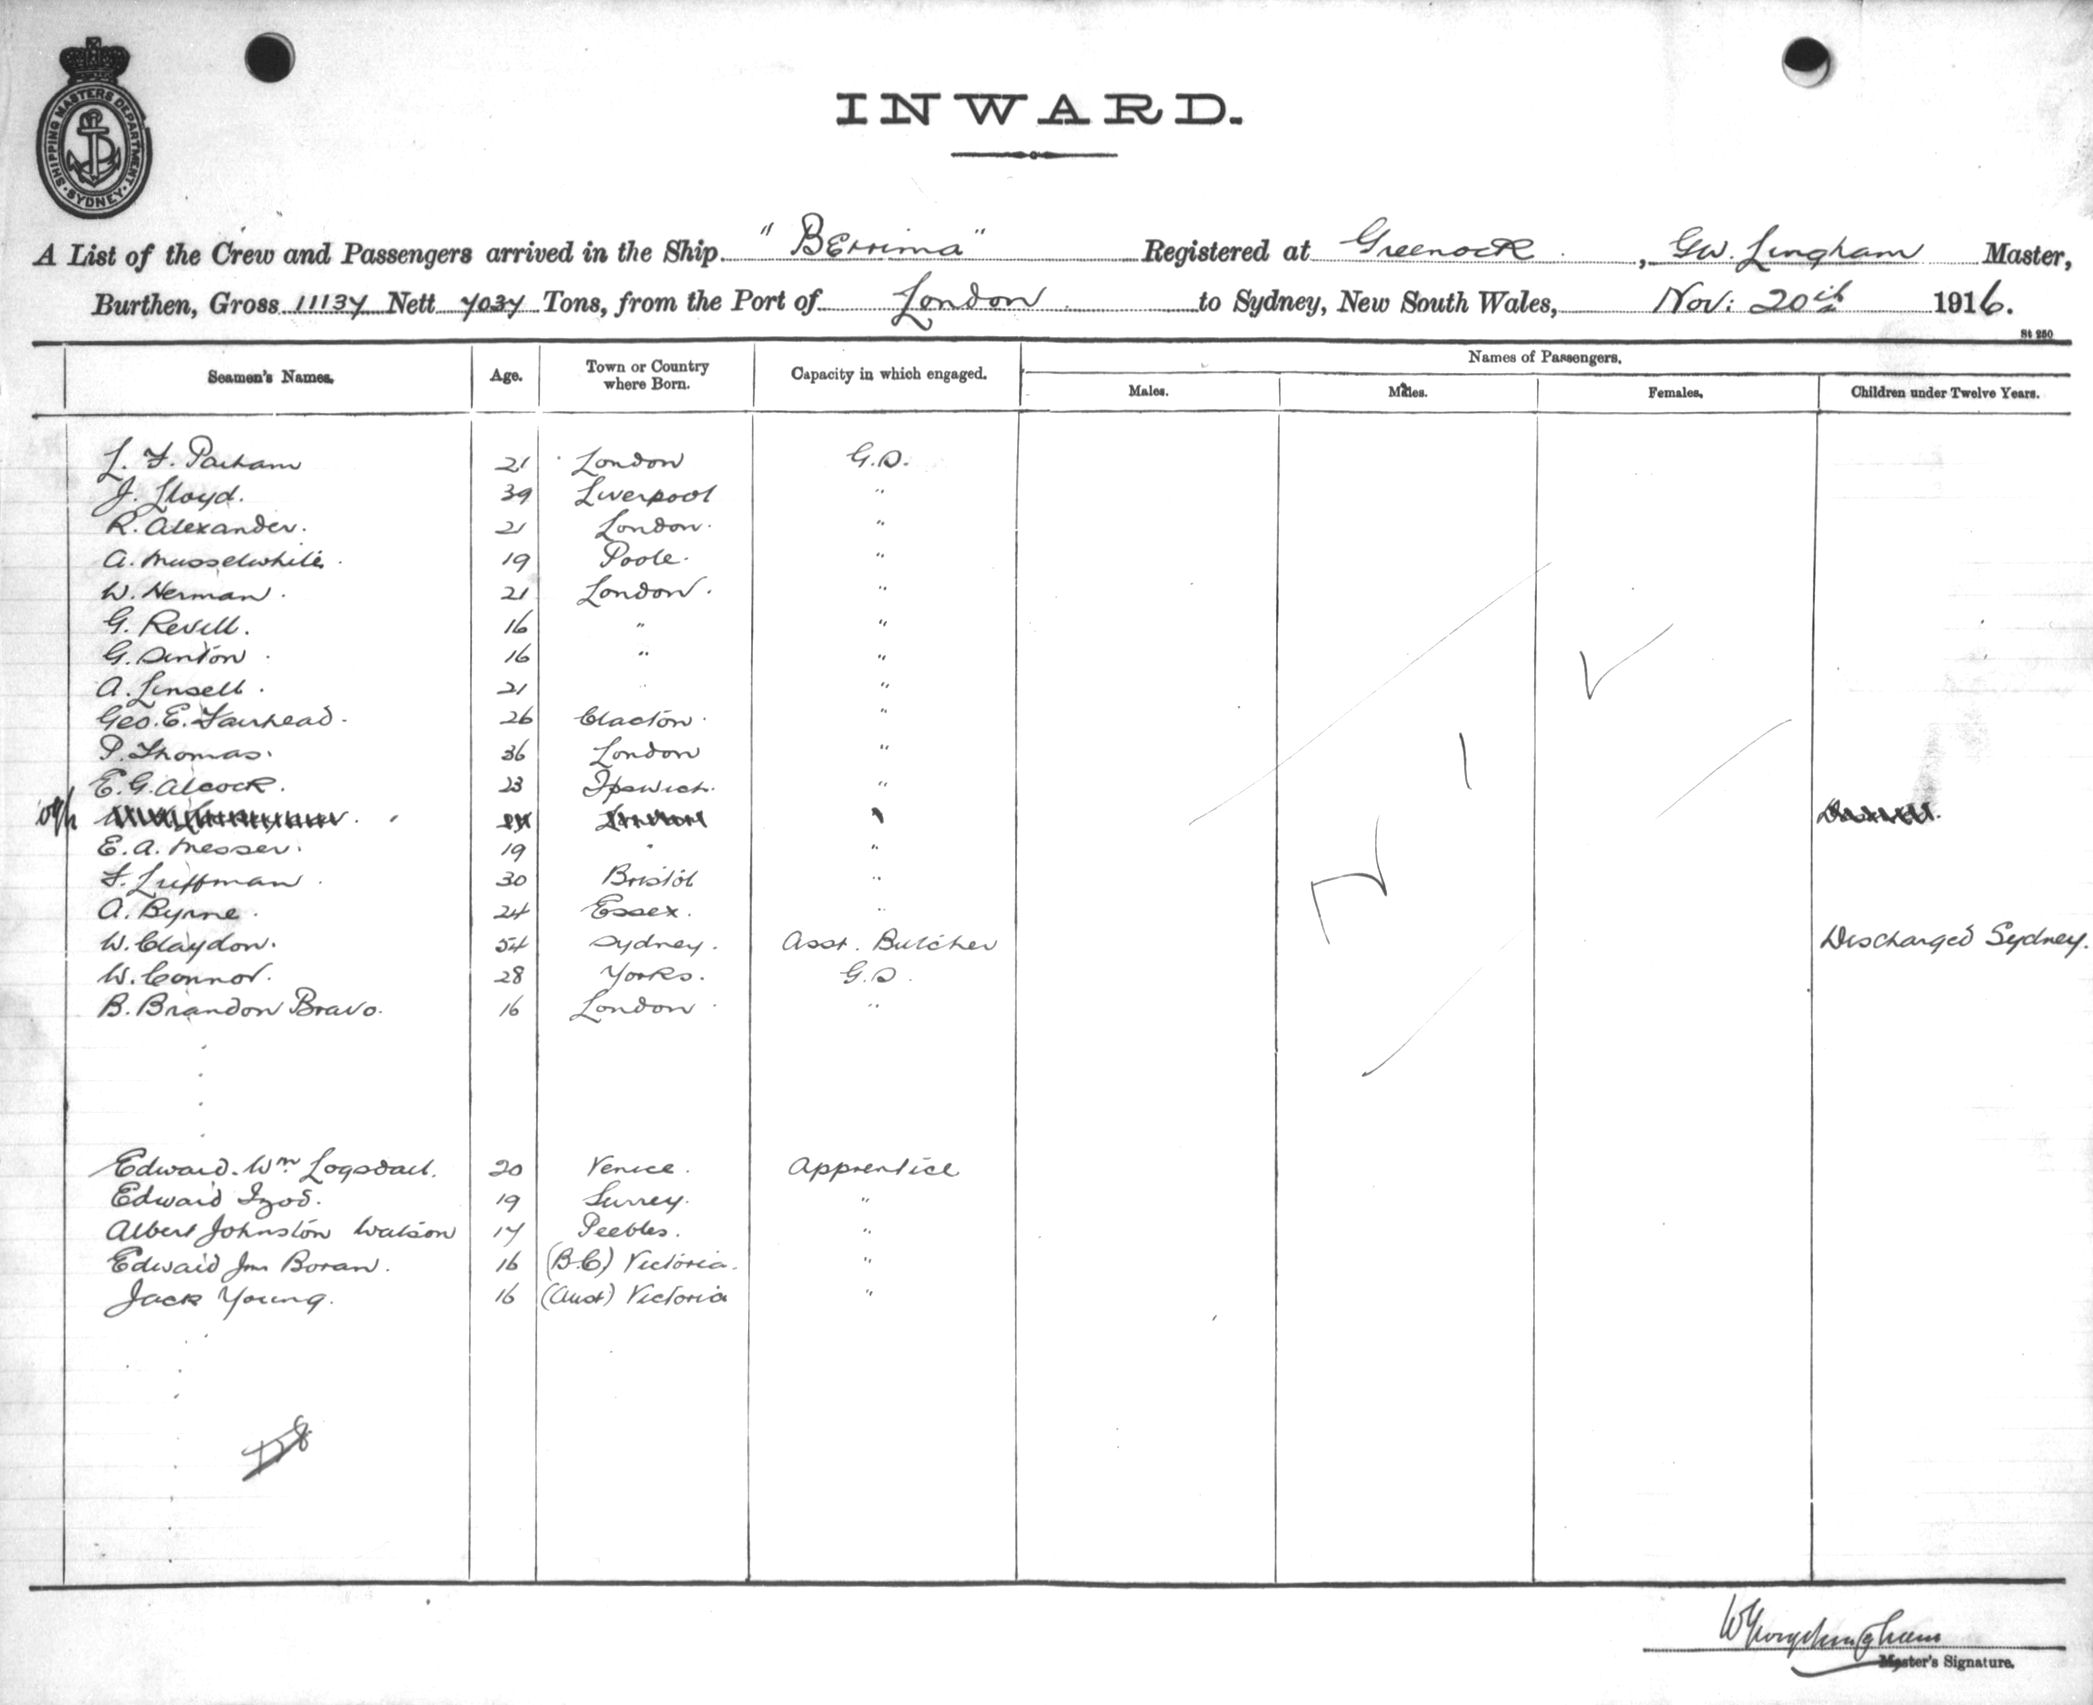 SHIPPING MASTERS DEPARTMENT. SYDNEY
INWARD.
A List of the Crew and Passengers arrived in the Ship "Berrima" Registered at Greenock, GW. Lingham Master,
Burthen, Gross 11137 Nett 7037 Tons, from the Port of London to Sydney, New South Wales, Nov: 20th 1916.
St 250
Seamen's Names. Age. Town or Country where Born. Capacity in which engaged. Names of Passengers.
Males. Males. Females. Children under Twelve Years.
L. F. Parham 21 London G.S.
J. Lloyd. 39 Liverpool "
R. Alexander. 21 London. "
A. Musselwhite. 19 Poole. "
W. Herman. 21 London. "
G. Revell. 16 " "
G. Sinton. 16 " "
A. Linsell. 21 " "
Geo. E. Fairhead. 26 Clacton. "
P. Thomas. 36 London "
E. G. Alcock. 23 Ipswich. "
E. A. Messer. 19 " "
F. Luffman. 30 Bristol "
A. Byrne. 24 Essex. "
W. Claydon. 54 Sydney. Asst. Butcher Discharged Sydney.
W. Connor. 28 Yorks. G.S.
B. Brandon Bravo. 16 London "
Edward. Wm. Logsdail. 20 Venice. Apprentice
Edward Izod. 19 Surrey. "
Albert Johnston Watson 17 Peebles. "
Edward Jno Boran. 16 (B.C) Victoria. "
Jack Young. 16 (Aust) Victoria "
Master's Signature.